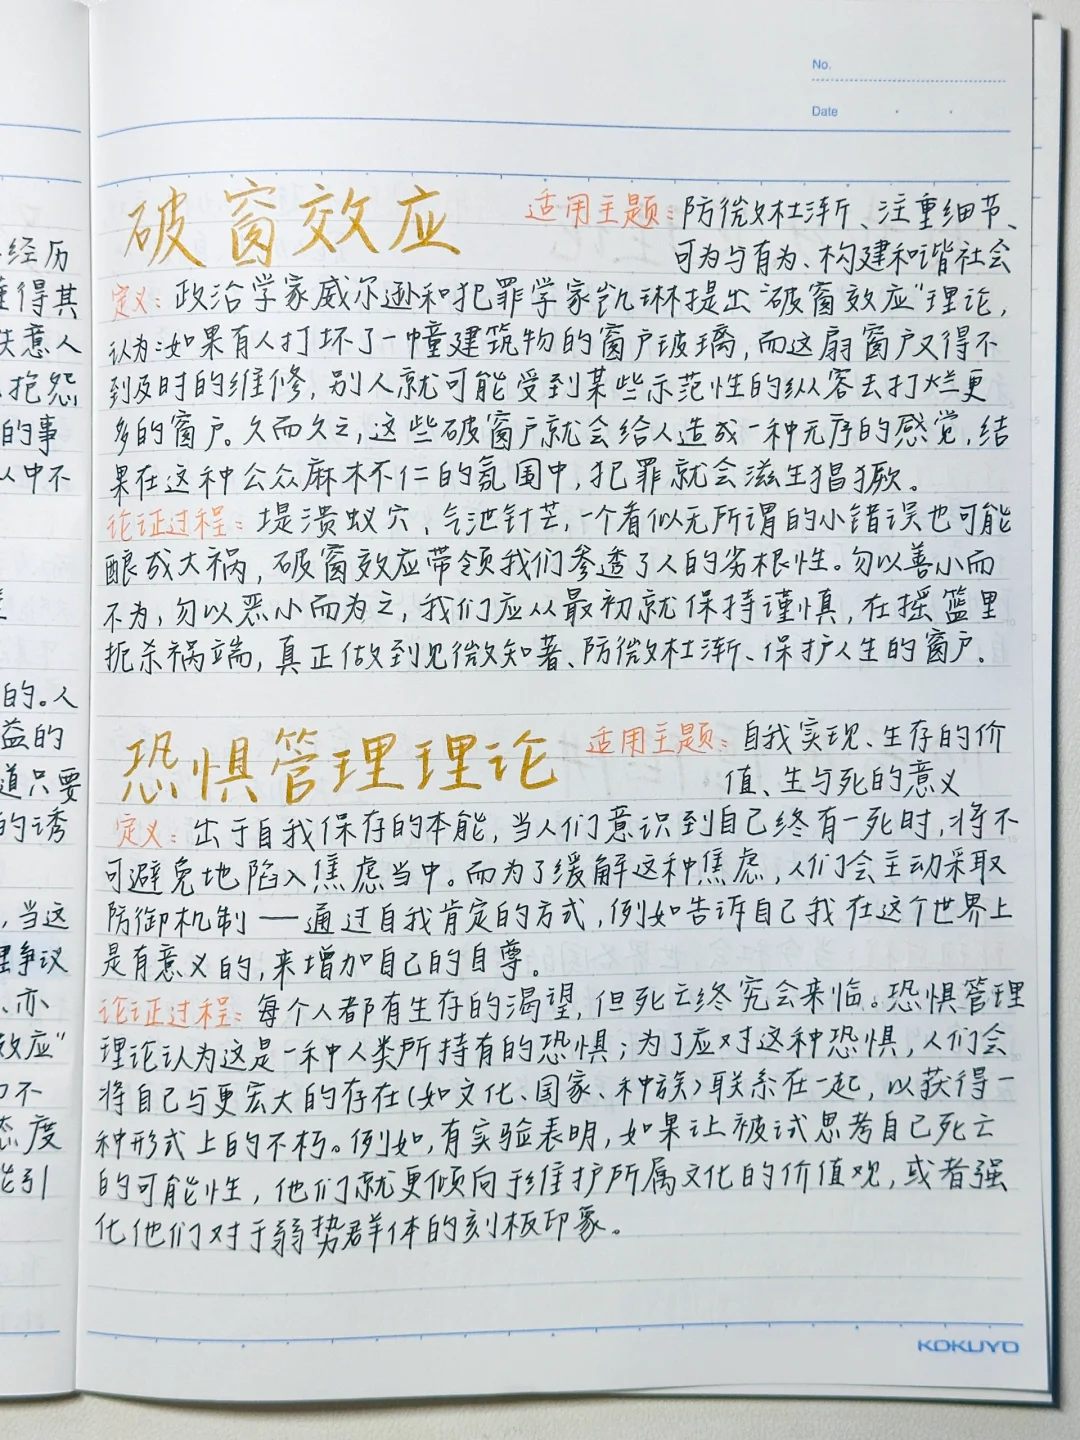 No.
Date
经历
得其
失意人
抱怨
的事
从中不
的。人
益的
道只要
的诱
，当这
争议
、亦
效应”
不
态度
能引
破窗效应
适用主题：防微杜渐、注重细节、
可为与有为、构建和谐社会
定义：政治学家威尔逊和犯罪学家凯琳提出“破窗效应”理论，
认为：如果有人打坏了一幢建筑物的窗户玻璃，而这扇窗户又得不
到及时的维修，别人就可能受到某些示范性的纵容去打烂更
多的窗户。久而久之，这些破窗户就会给人造成一种无序的感觉，结
果在这种公众麻木不仁的氛围中，犯罪就会滋生猖獗。
论证过程：堤溃蚁穴、气泄针芒，一个看似无所谓的小错误也可能
酿成大祸，破窗效应带领我们参透了人的劣根性。勿以善小而
不为，勿以恶小而为之，我们应从最初就保持谨慎，在摇篮里
扼杀祸端，真正做到见微知著、防微杜渐、保护人生的窗户。
恐惧管理理论
适用主题：自我实现、生存的价
值、生与死的意义
定义：出于自我保存的本能，当人们意识到自己终有一死时，将不
可避免地陷入焦虑当中。而为了缓解这种焦虑，人们会主动采取
防御机制——通过自我肯定的方式，例如告诉自己我在这个世界上
是有意义的，来增加自己的自尊。
论证过程：每个人都有生存的渴望，但死亡终究会来临。恐惧管理
理论认为这是一种人类所持有的恐惧；为了应对这种恐惧，人们会
将自己与更宏大的存在（如文化、国家、种族）联系在一起，以获得一
种形式上的不朽。例如，有实验表明，如果让被试思考自己死亡
的可能性，他们就更倾向于维护所属文化的价值观，或者强
化他们对于弱势群体的刻板印象。
KOKUYO